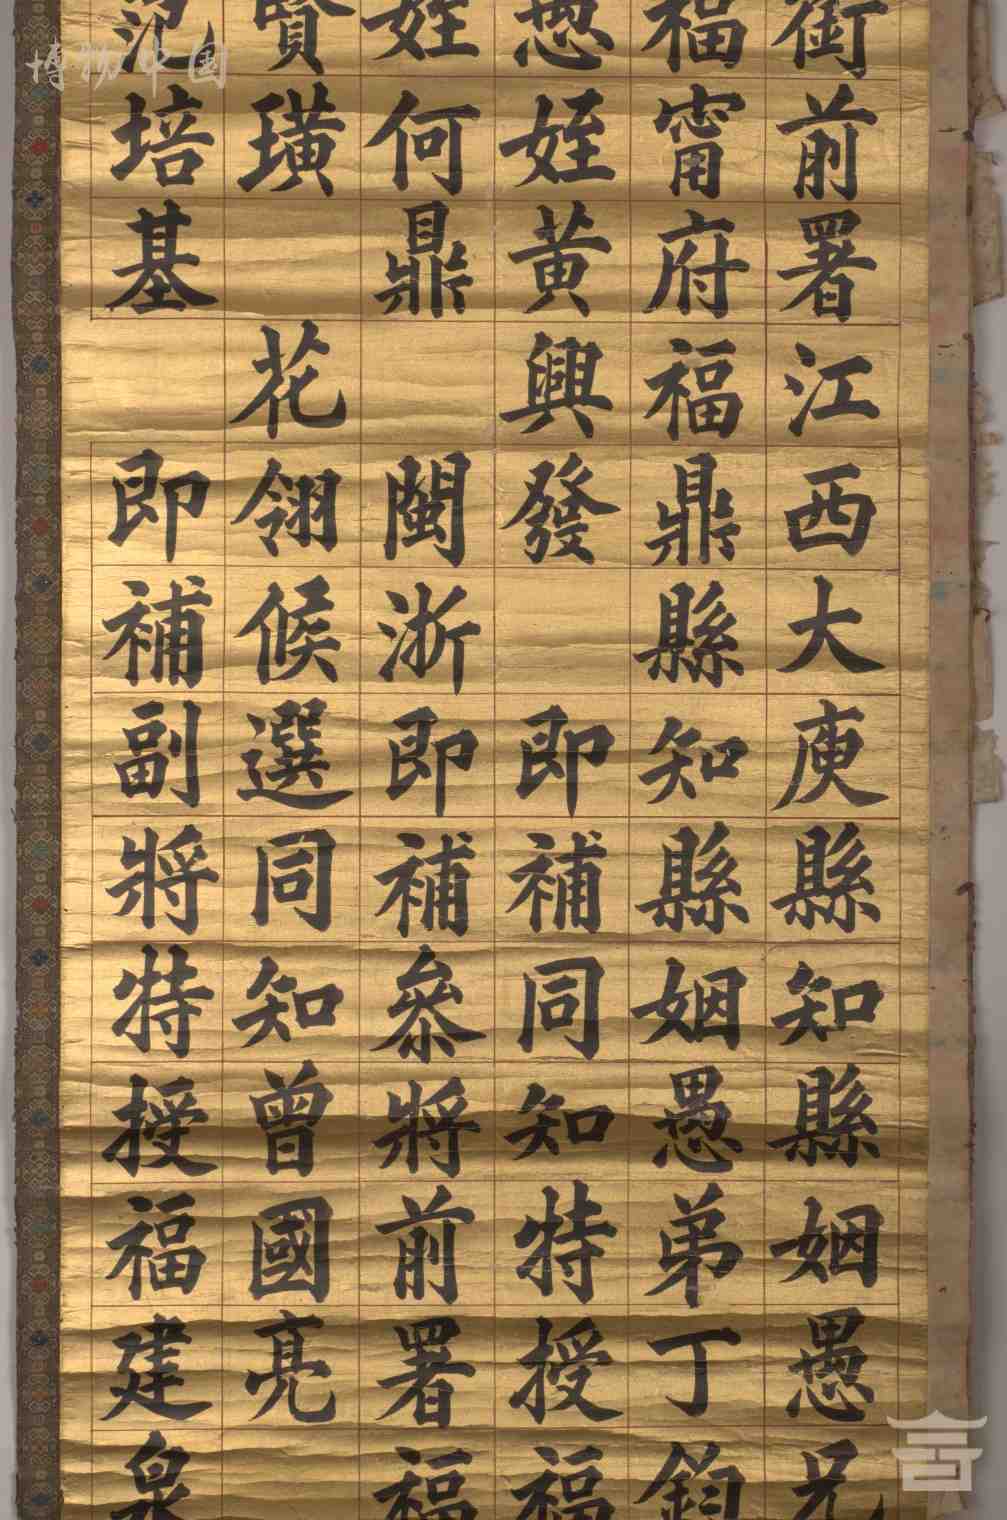 銜前署江西大庾縣知縣姻愚兄
福甯府福鼎縣知縣姻愚弟丁鈞
愚姪黃興發 即補同知特授福
姪何鼎 閩浙即補叅將前署福
賢璜 花翎候選同知曾國亮
范培基 即補副將特授福建泉
博物中国